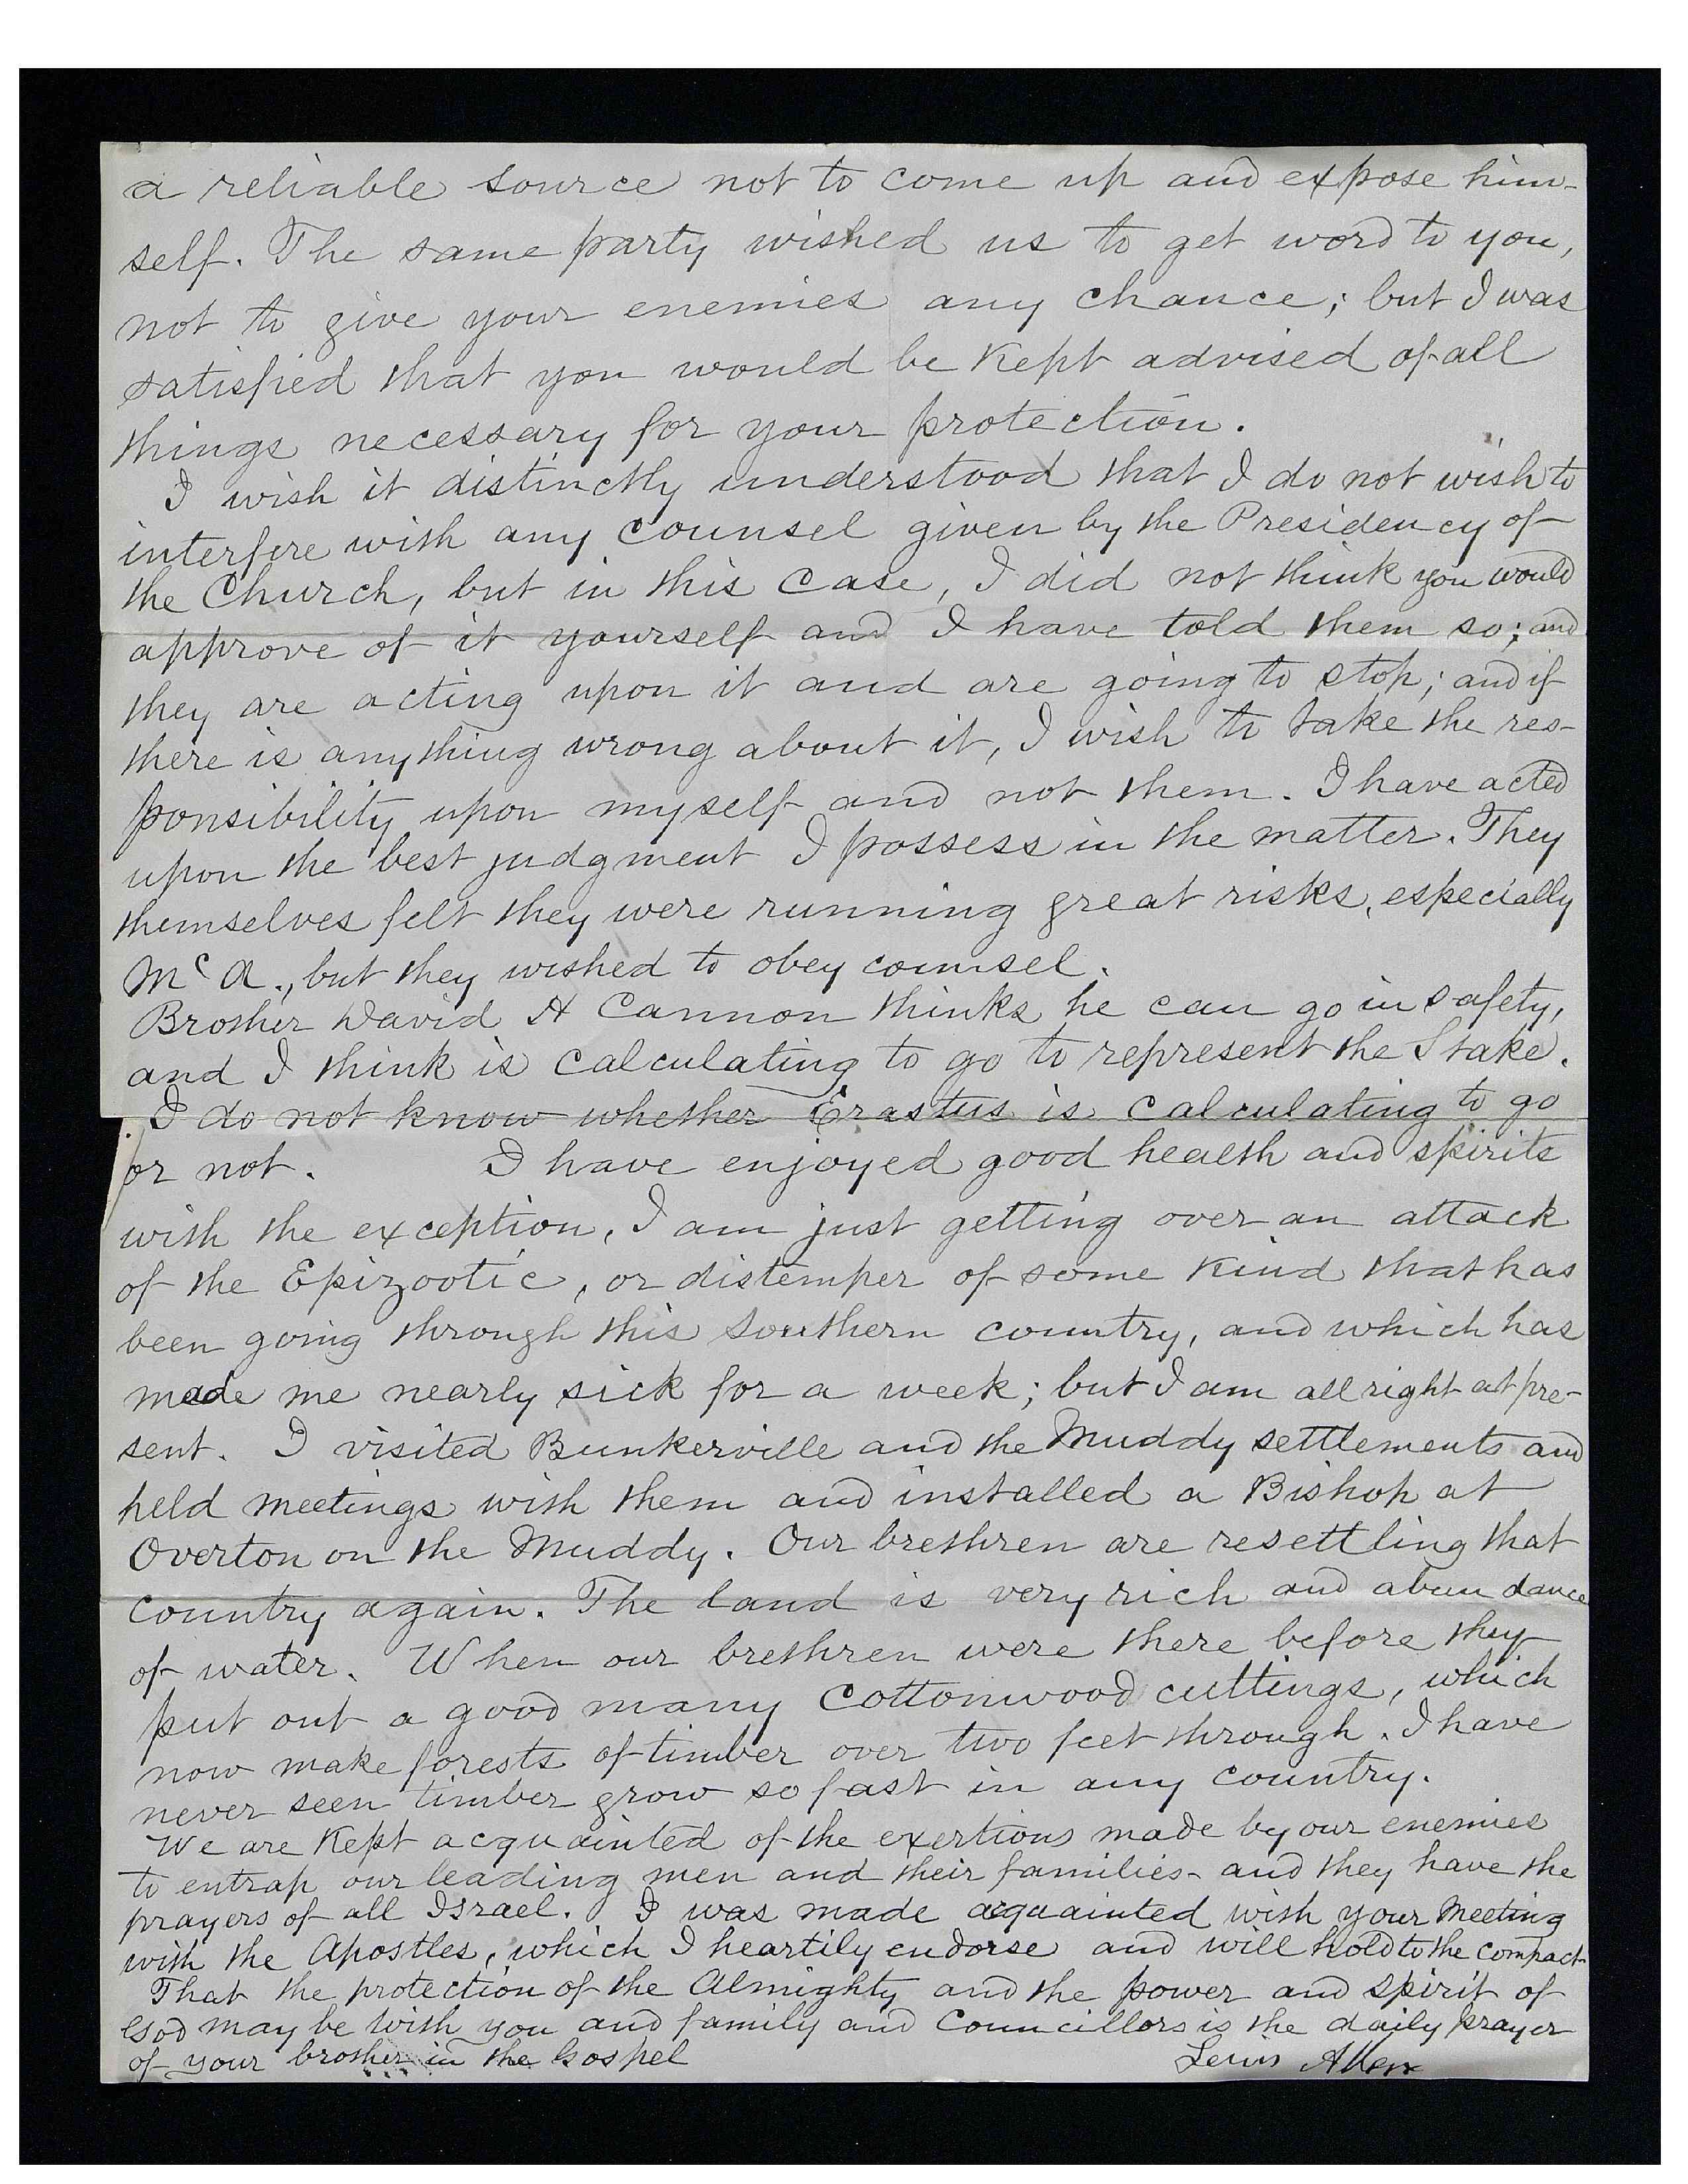 a reliable source not to come up and expose him-
self. The same party wished us to get word to you,
not to give your enemies any chance; but I was
satisfied that you would be kept advised of all
things necessary for your protection.
I wish it distinctly understood that I do not wish to
interfere with any counsel given by the Presidency of
the Church, but in this case, I did not think you would
approve of it yourself and I have told them so; and
they are acting upon it and are going to stop; and if
there is anything wrong about it, I wish to take the res-
ponsibility upon myself and not them. I have acted
upon the best judgment I possess in the matter. They
themselves felt they were running great risks, especially
McA., but they wished to obey counsel.
Brother David H Cannon thinks he can go in safety,
and I think is calculating to go to represent the Stake.
I do not know whether Erastus is calculating to go
or not. I have enjoyed good health and spirits
with the exception, I am just getting over an attack
of the Epizootic, or distemper of some kind that has
been going through this southern country, and which has
made me nearly sick for a week; but I am all right at pre-
sent. I visited Bunkerville and the Muddy settlements and
held meetings with them and installed a Bishop at
Overton on the Muddy. Our brethren are resettling that
country again. The land is very rich and abundance
of water. When our brethren were there before they
put out a good many cottonwood cuttings, which
now make forests of timber over two feet through. I have
never seen timber grow so fast in any country.
We are kept acquainted of the exertions made by our enemies
to entrap our leading men and their families- and they have the
prayers of all Israel. I was made acquainted with your meeting
with the Apostles, which I heartily endorse and will hold to the compact
That the protection of the Almighty and the power and spirit of
God may be with you and family and Councillors is the daily prayer
of your brother in the Gospel Lewis Allen